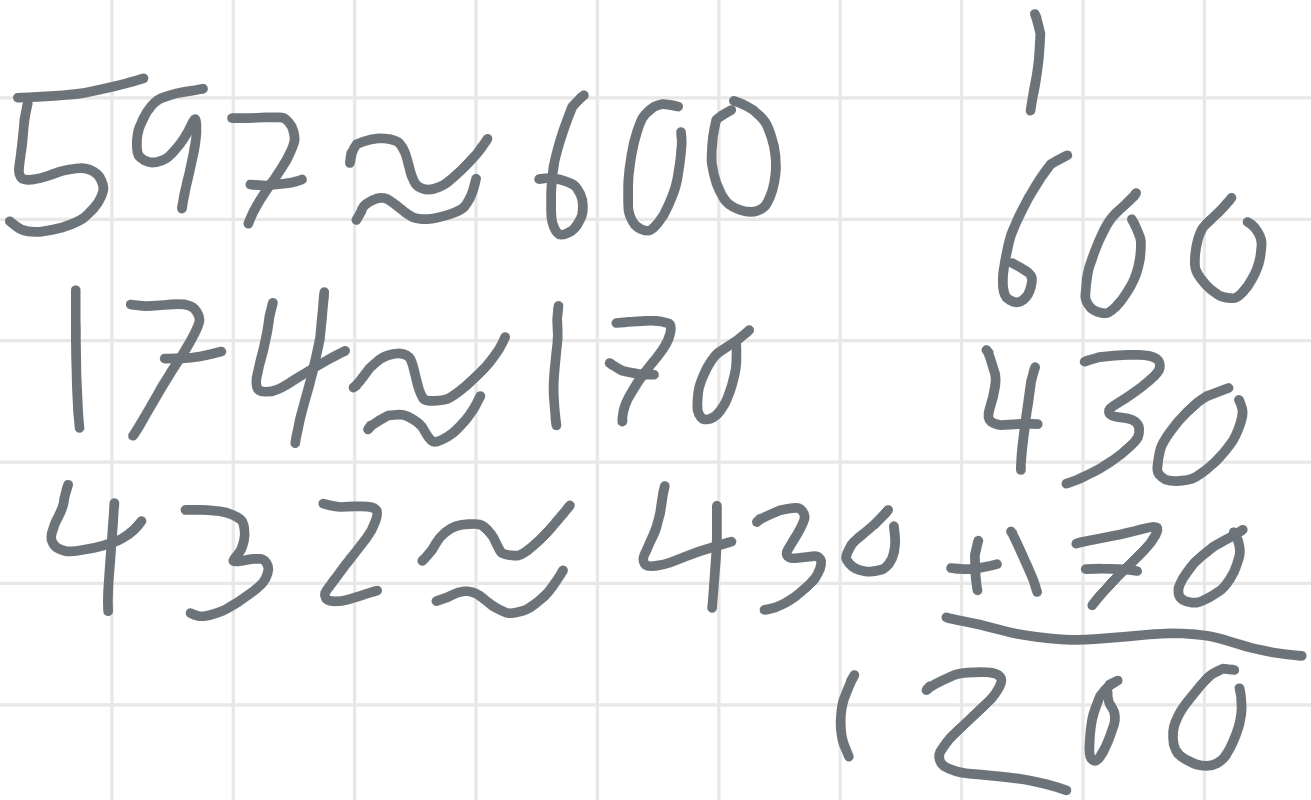 597≈600
174≈170
432≈430
1
600
430
+170
1200